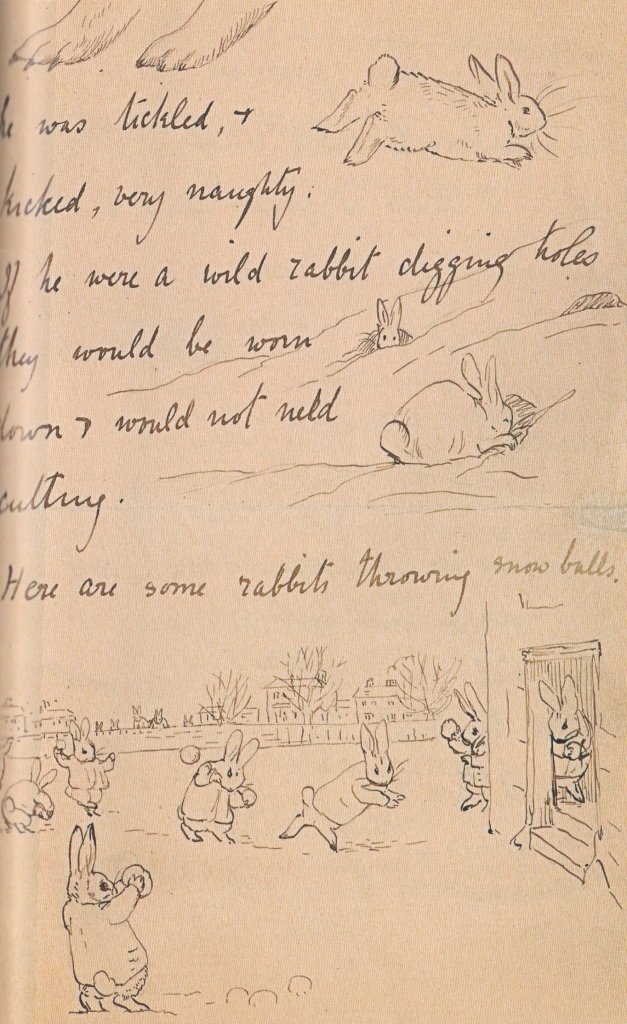 he was tickled, &
kicked, very naughty.
If he were a wild rabbit digging holes
they would be worn
down & would not need
cutting.
Here are some rabbits throwing snow balls.